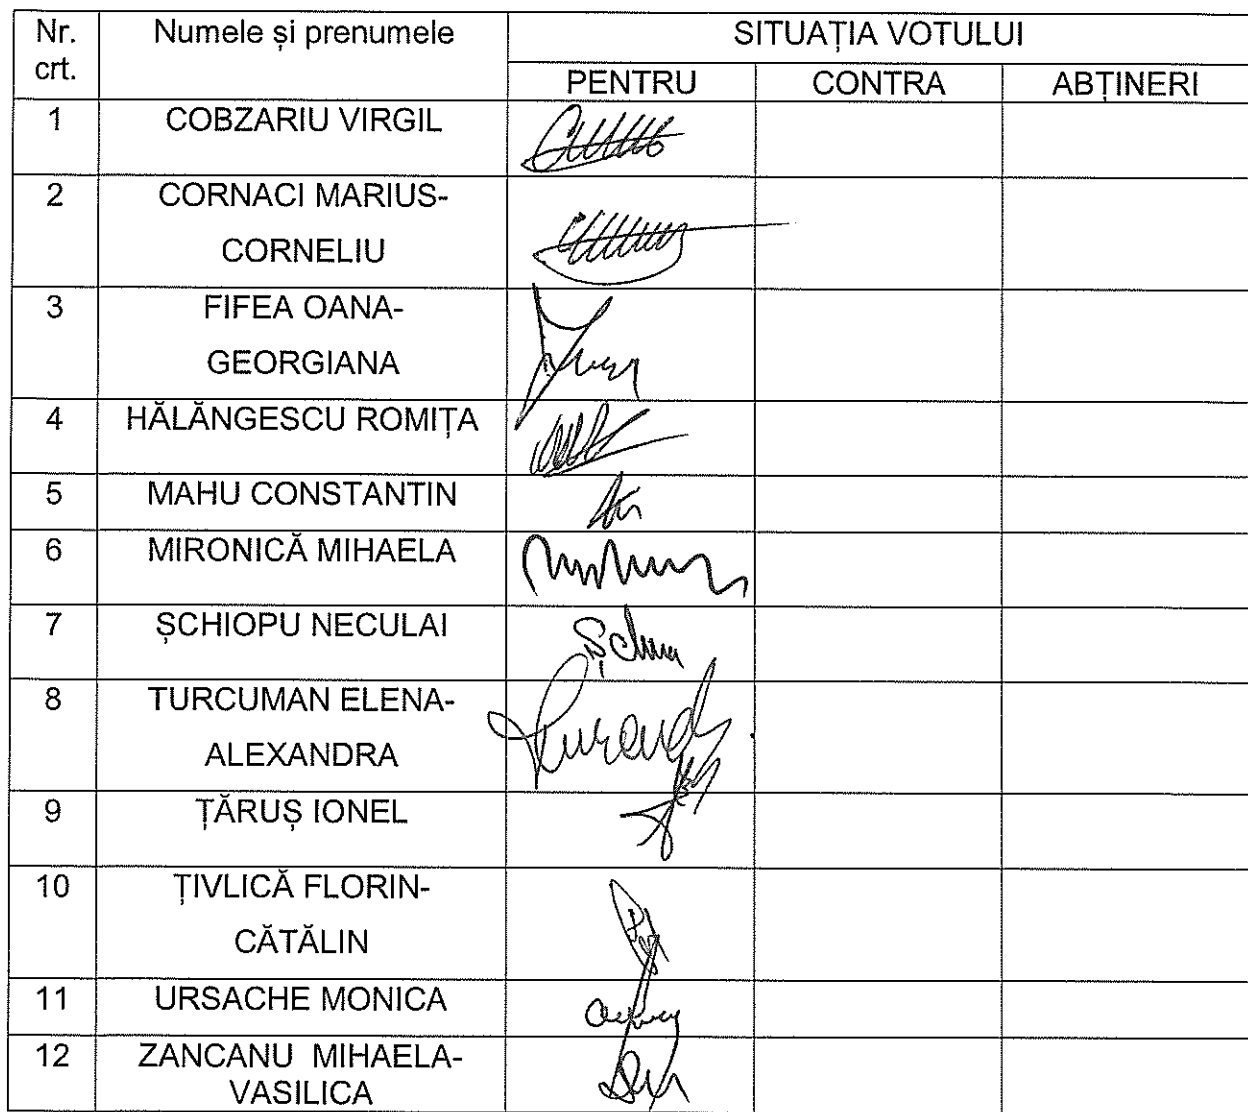 Nr. crt. Numele și prenumele SITUAȚIA VOTULUI
PENTRU CONTRA ABȚINERI
1 COBZARIU VIRGIL
2 CORNACI MARIUS-
CORNELIU
3 FIFEA OANA-
GEORGIANA
4 HĂLĂNGESCU ROMIȚA
5 MAHU CONSTANTIN
6 MIRONICĂ MIHAELA
7 ȘCHIOPU NECULAI
8 TURCUMAN ELENA-
ALEXANDRA
9 ȚĂRUȘ IONEL
10 ȚIVLICĂ FLORIN-
CĂTĂLIN
11 URSACHE MONICA
12 ZANCANU MIHAELA-
VASILICA